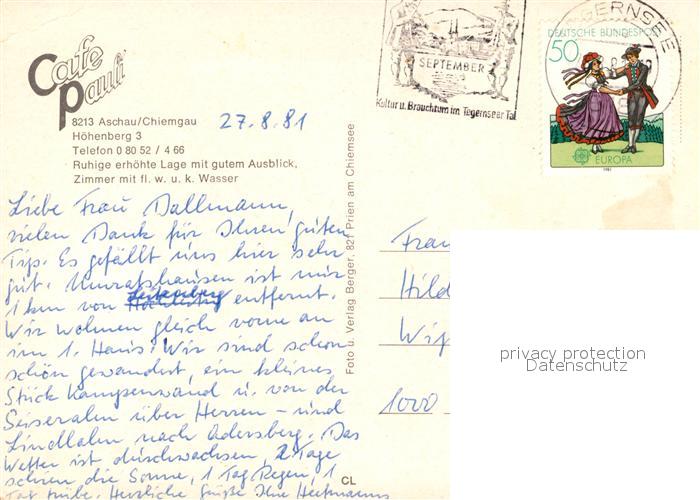 Cafe
Pauli
8213 Aschau/Chiemgau
Höhenberg 3
Telefon 0 80 52 / 4 66
Ruhige erhöhte Lage mit gutem Ausblick,
Zimmer mit fl. w. u. k. Wasser
27.8.81
Liebe Frau Dallmann,
vielen Dank für Ihren guten
Tip. Es gefällt uns hier sehr
gut. ist nur
1 km von entfernt.
Wir wohnen gleich vorne an
im 1. Haus. Wir sind schon
schön gewandert, ein kleines
Stück Kampenwand u. von der
Seiseralm über Herren- und
Lindlalm nach Adersberg. Das
Wetter ist durchwachsen, 2 Tage
schien die Sonne, 1 Tag Regen, 1
Tag trübe. Herzliche Grüße Ihre
Foto u. Verlag Berger, 821 Prien am Chiemsee
CL
SEPTEMBER
Kultur u. Brauchtum im Tegernseer Tal
TEGERNSEE
DEUTSCHE BUNDESPOST
50
EUROPA
1981
Frau
Hild
Wi
1000
privacy protection
Datenschutz